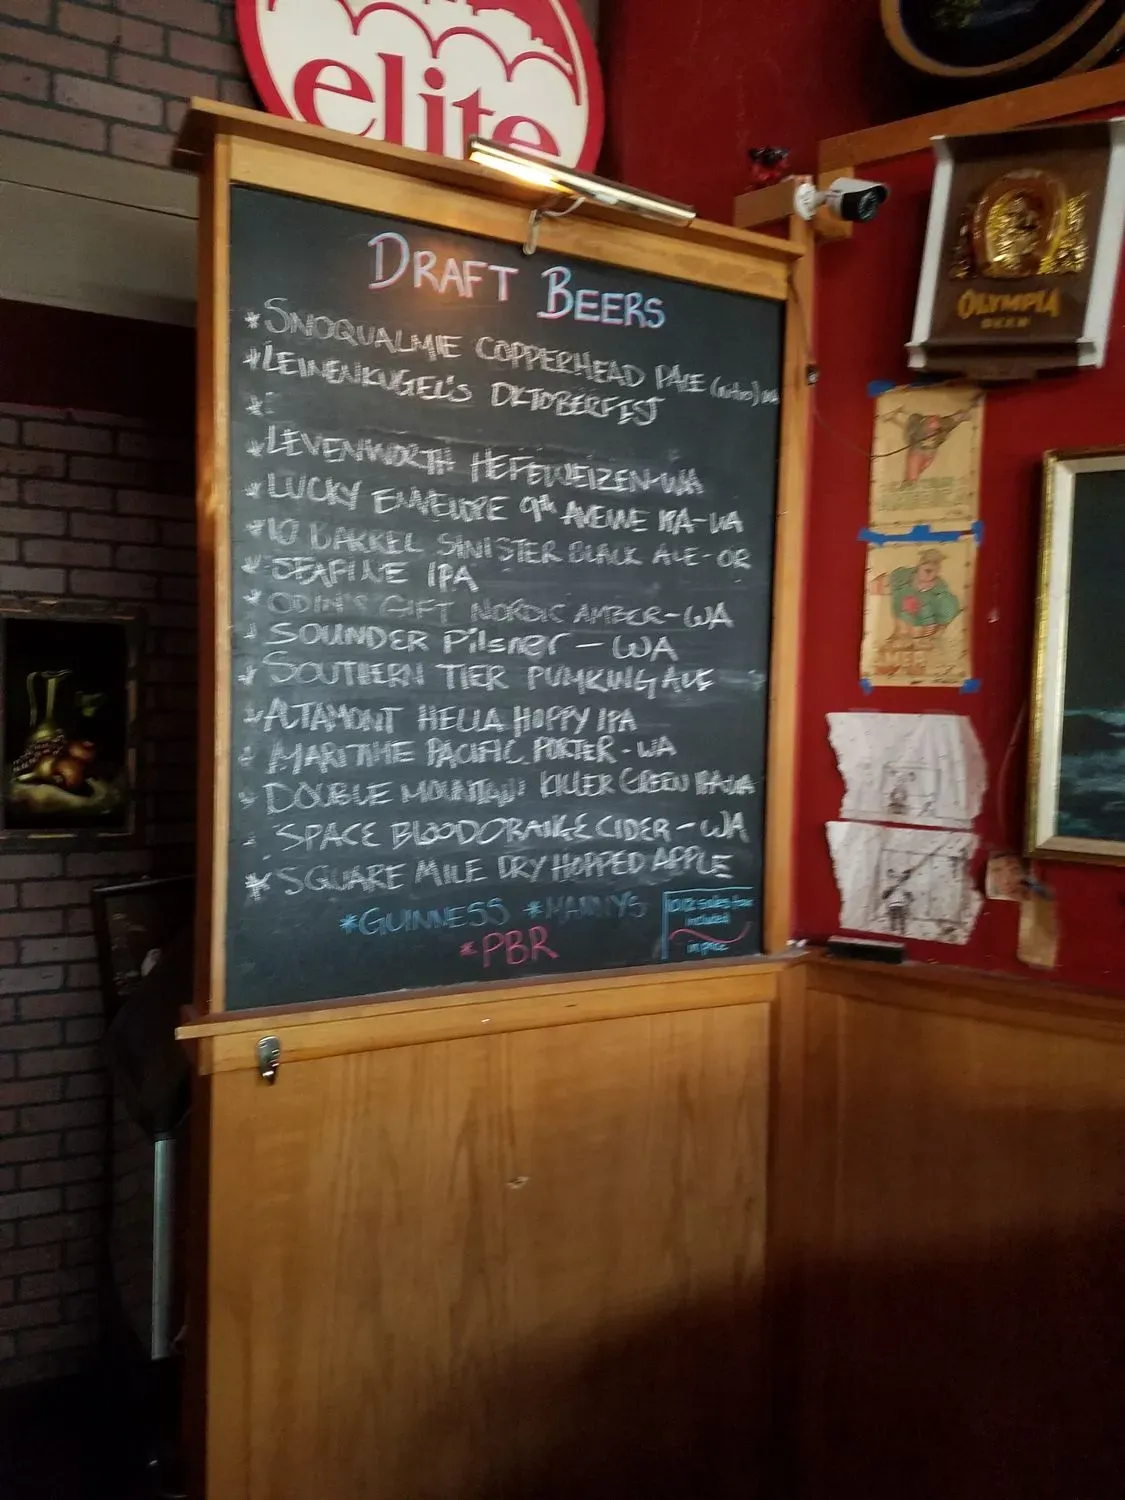 elite
DRAFT BEERS
*SNOQUALMIE COPPERHEAD PALE (nitro) WA
*LEINENKUGEL'S OKTOBERFEST
*
*LEVENWORTH HEFEWEIZEN-WA
*LUCKY ENVELOPE 9th AVENUE IPA-WA
*10 BARREL SINISTER BLACK ALE-OR
*SEAPINE IPA
*ODIN'S GIFT NORDIC AMBER-WA
SOUNDER PilsNer - WA
*SOUTHERN TIER PUMKING ALE
ALTAMONT HELLA HOPPY IPA
MARITIME PACIFIC PORTER-WA
DOUBLE MOUNTAIN KILLER GREEN IPA-WA
SPACE BLOOD ORANGE CIDER-WA
*SQUARE MILE DRY HOPPED APPLE
*GUINNESS *MANNYS
*PBR
sales tax
included
in price
OLYMPIA
BEER